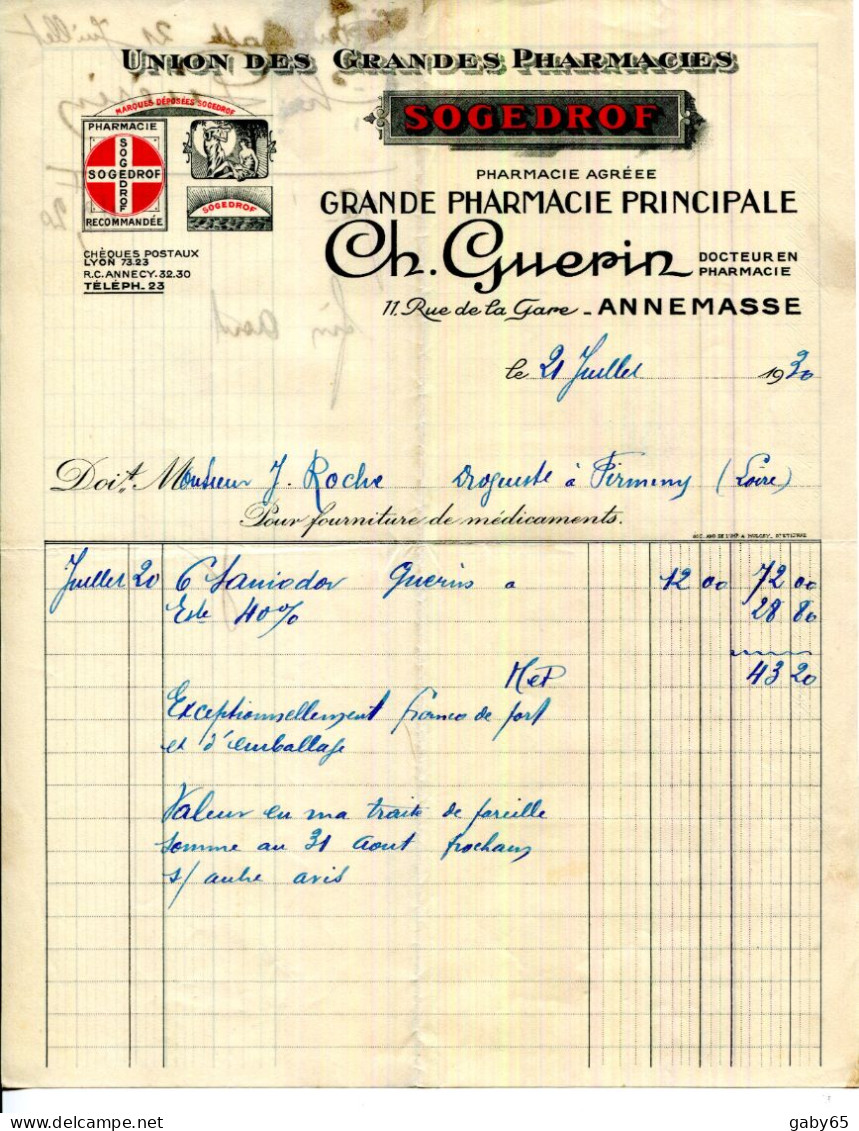 UNION DES GRANDES PHARMACIES
MARQUES DÉPOSÉES SOGEDROF
PHARMACIE
SOGEDROF
SOGEDROF
RECOMMANDÉE
SOGEDROF
CHÈQUES POSTAUX
LYON 73.23
R.C. ANNECY. 32.30
TÉLÉPH. 23
SOGEDROF
PHARMACIE AGRÉEE
GRANDE PHARMACIE PRINCIPALE
Ch. Guerin DOCTEUR EN
PHARMACIE
11. Rue de la Gare - ANNEMASSE
le 21 Juillet 1930
Doit Monsieur J. Roche Droguiste à Firminy (Loire)
Pour fourniture de médicaments.
Juillet 20 6 Saniodor Guerin a 12 00 72 00
40% 28 80
43 20
Exceptionnellement franco de port
et d'emballage
Valeur en ma traite de pareille
somme au 31 Aout prochain
s/ autre avis
gaby65